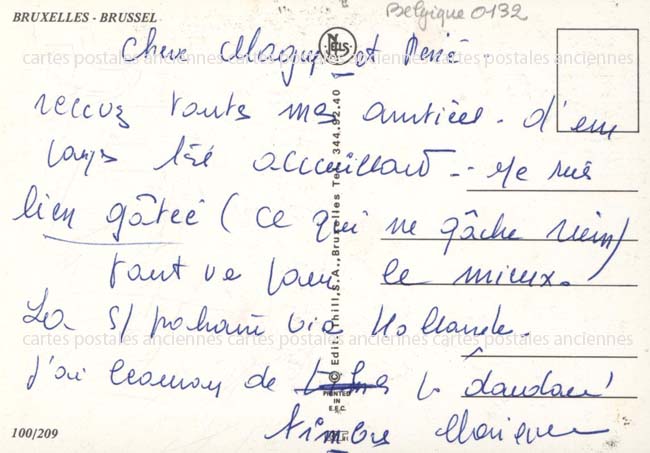 BRUXELLES - BRUSSEL
Belgique 0132
NELS
Chère Maguy et René.
cartes postales anciennes cartes postales anciennes cartes postales anciennes
recevez toutes mes amitiés. d'un
pays très accueillant - Je suis
bien gâtée (ce qui ne gâche rien)
tout va pour le mieux.
La s/ prochaine via Hollande.
cartes postales anciennes cartes postales anciennes cartes postales anciennes
j'ai beaucoup de timbres à
timbres
© Edit. Thill, S.A., Bruxelles Tel. 344.92.40
PRINTED
IN
E.E.C.
100/209